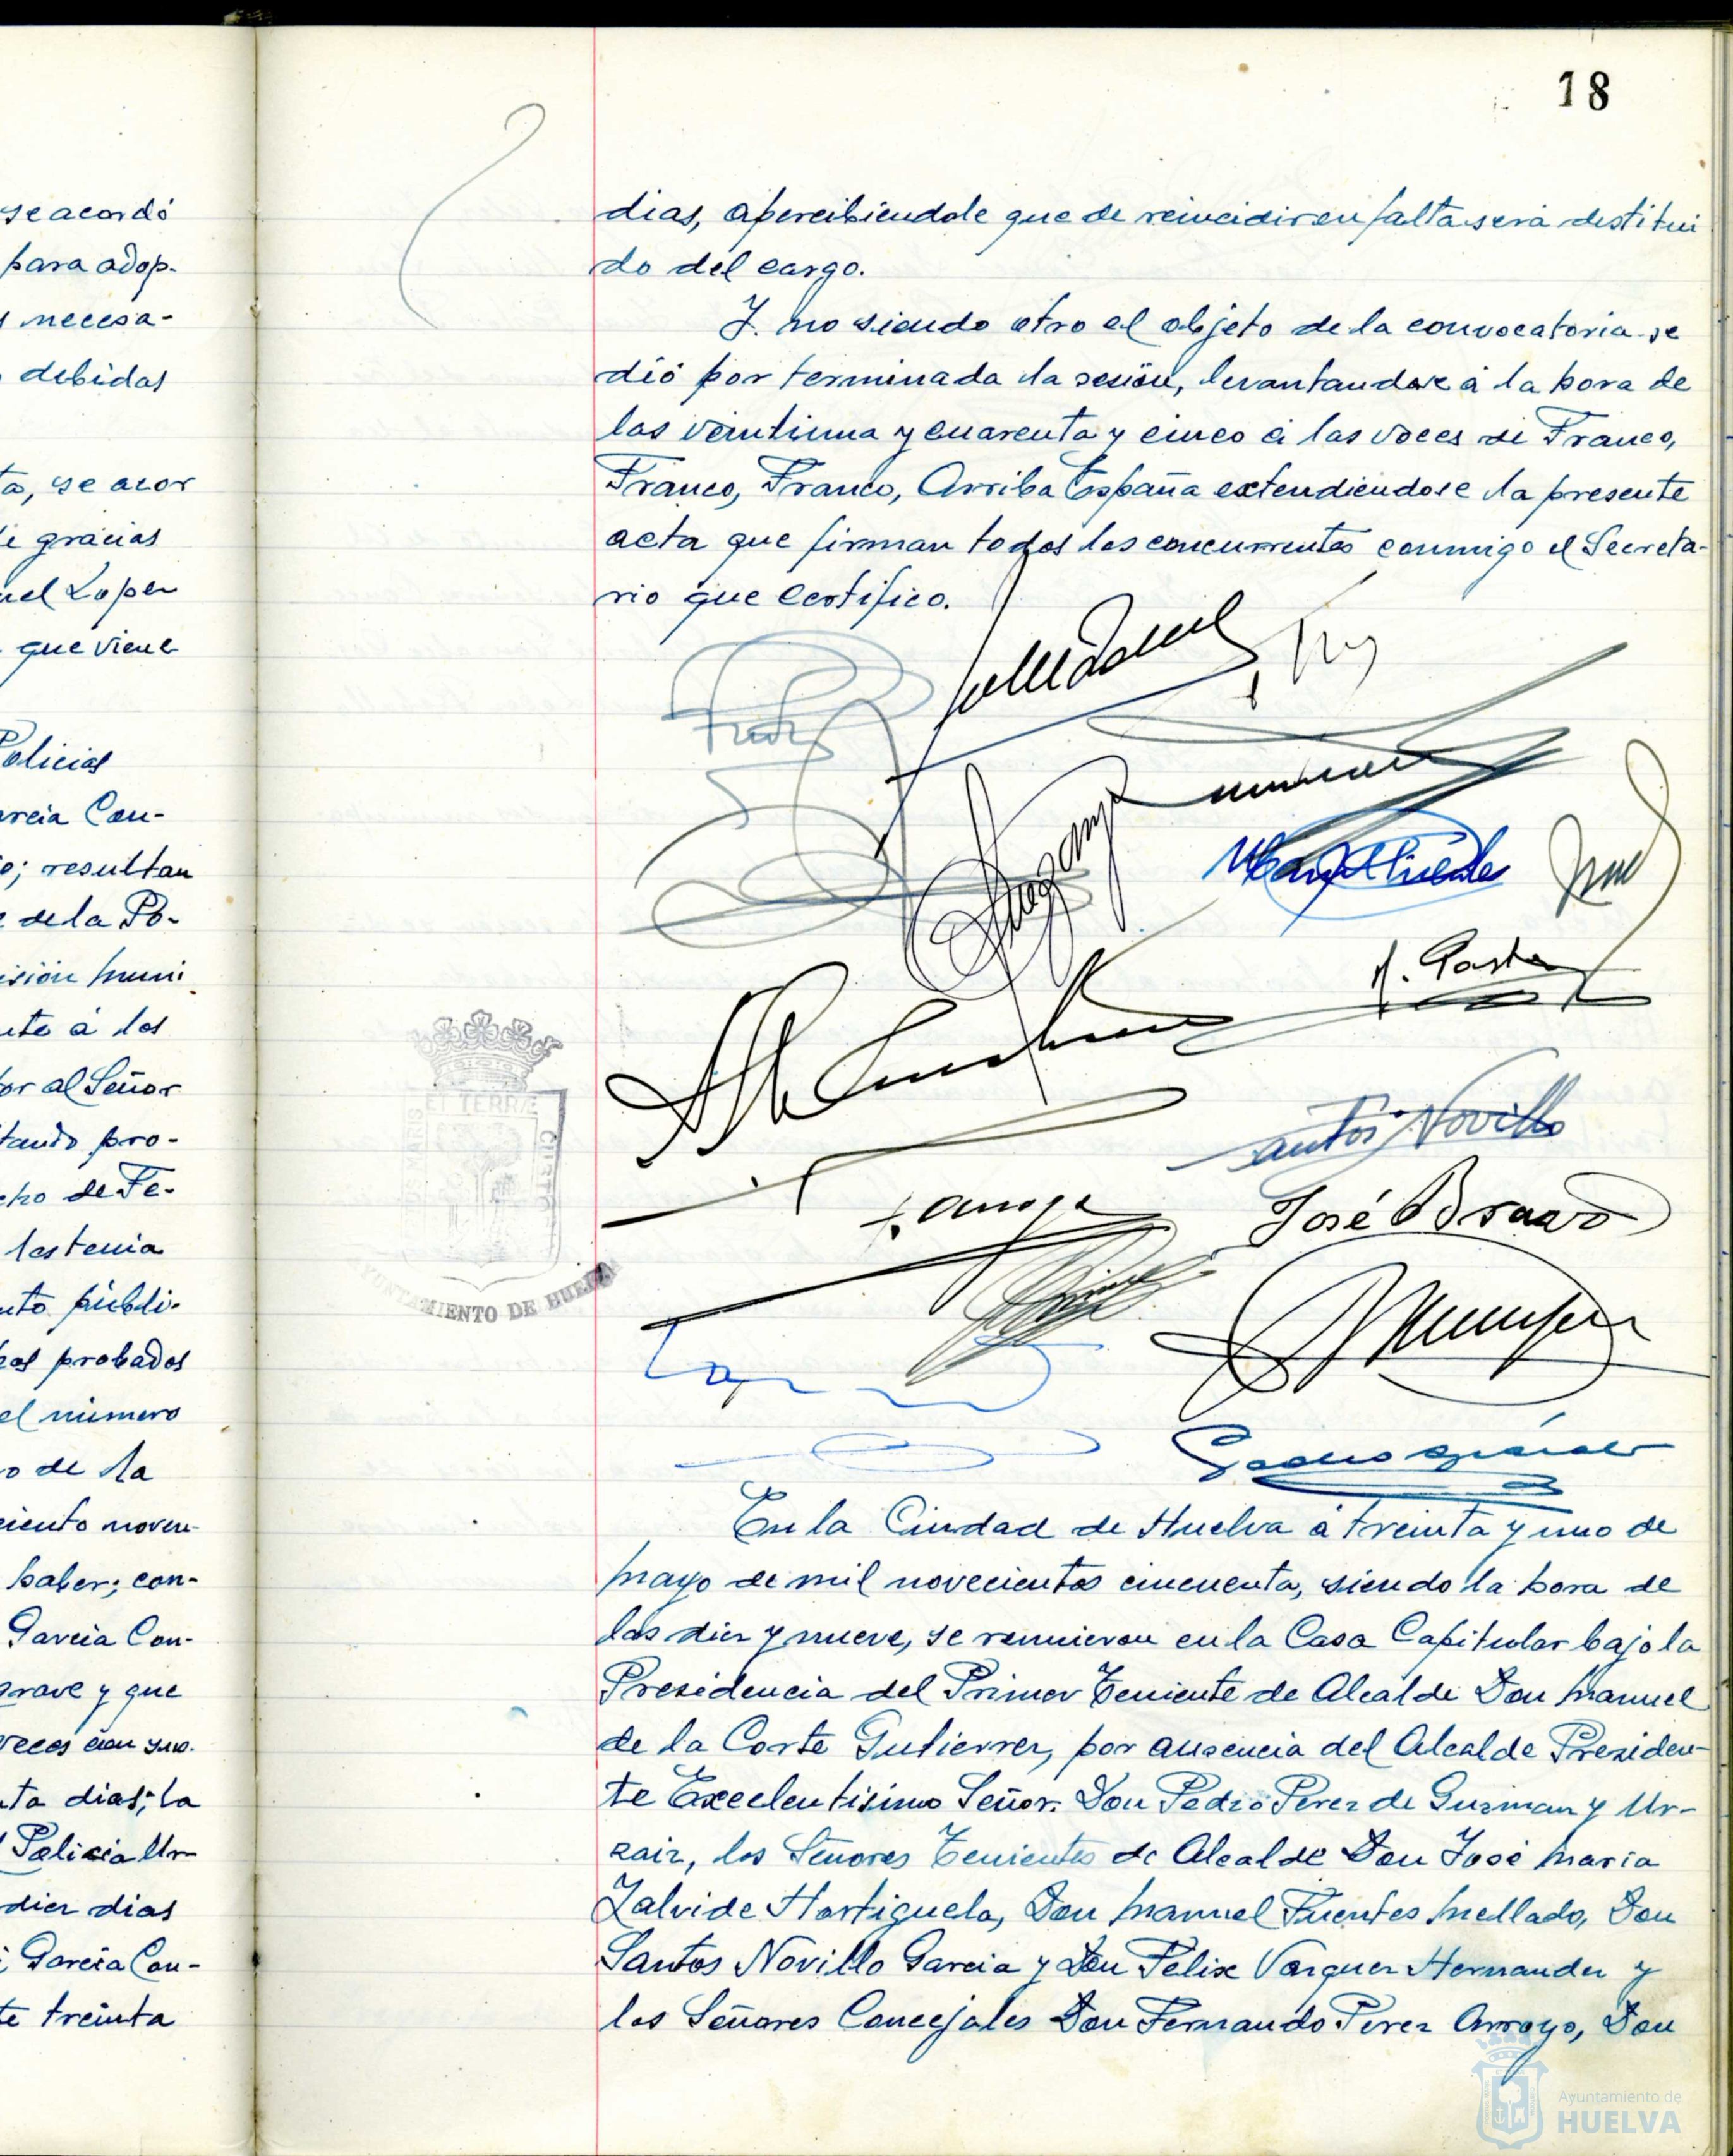 se acordó
para adop-
necesa-
debidas
se acor
gracias
Loper
que viene
Policias
Garcia Con-
; resultan
de la Po-
muni
á los
al Señor
pro-
de Fe-
las tenia
públi-
probados
el número
de la
ciento noven-
haber; con-
Garcia Con-
grave y que
dias; la
Policia Ur-
dier dias
Garcia Con-
treinta
18
dias, apercibiendole que de reincidir en falta será destitui
do del cargo.
Y. no siendo otro el objeto de la convocatoria se
dió por terminada la sesión, levantandose á la hora de
las veintiuna y cuarenta y cinco á las voces de Franco,
Franco, Franco, Arriba España extendiendose la presente
acta que firman todos los concurrentes conmigo el Secreta-
rio que certifico.
José Bravo
ET TERRÆ
AYUNTAMIENTO DE HUELVA
En la Ciudad de Huelva á treinta y uno de
mayo de mil novecientos cincuenta, siendo la hora de
las dier y nueve, se reunieron en la Casa Capitular bajo la
Presidencia del Primer Teniente de Alcalde Don Manuel
de la Corte Gutierrer, por ausencia del Alcalde Presiden-
te Excelentisimo Señor. Don Pedro Perez de Guzman y Ur-
zair, los Señores Tenientes de Alcalde Don José Maria
Zalvide Hortiguela, Don Manuel Fuentes Mellado, Don
Santos Novillo Garcia y Don Felix Varquer Hernander y
los Señores Concejales Don Fernando Perez Arroyo, Don
Ayuntamiento de
HUELVA